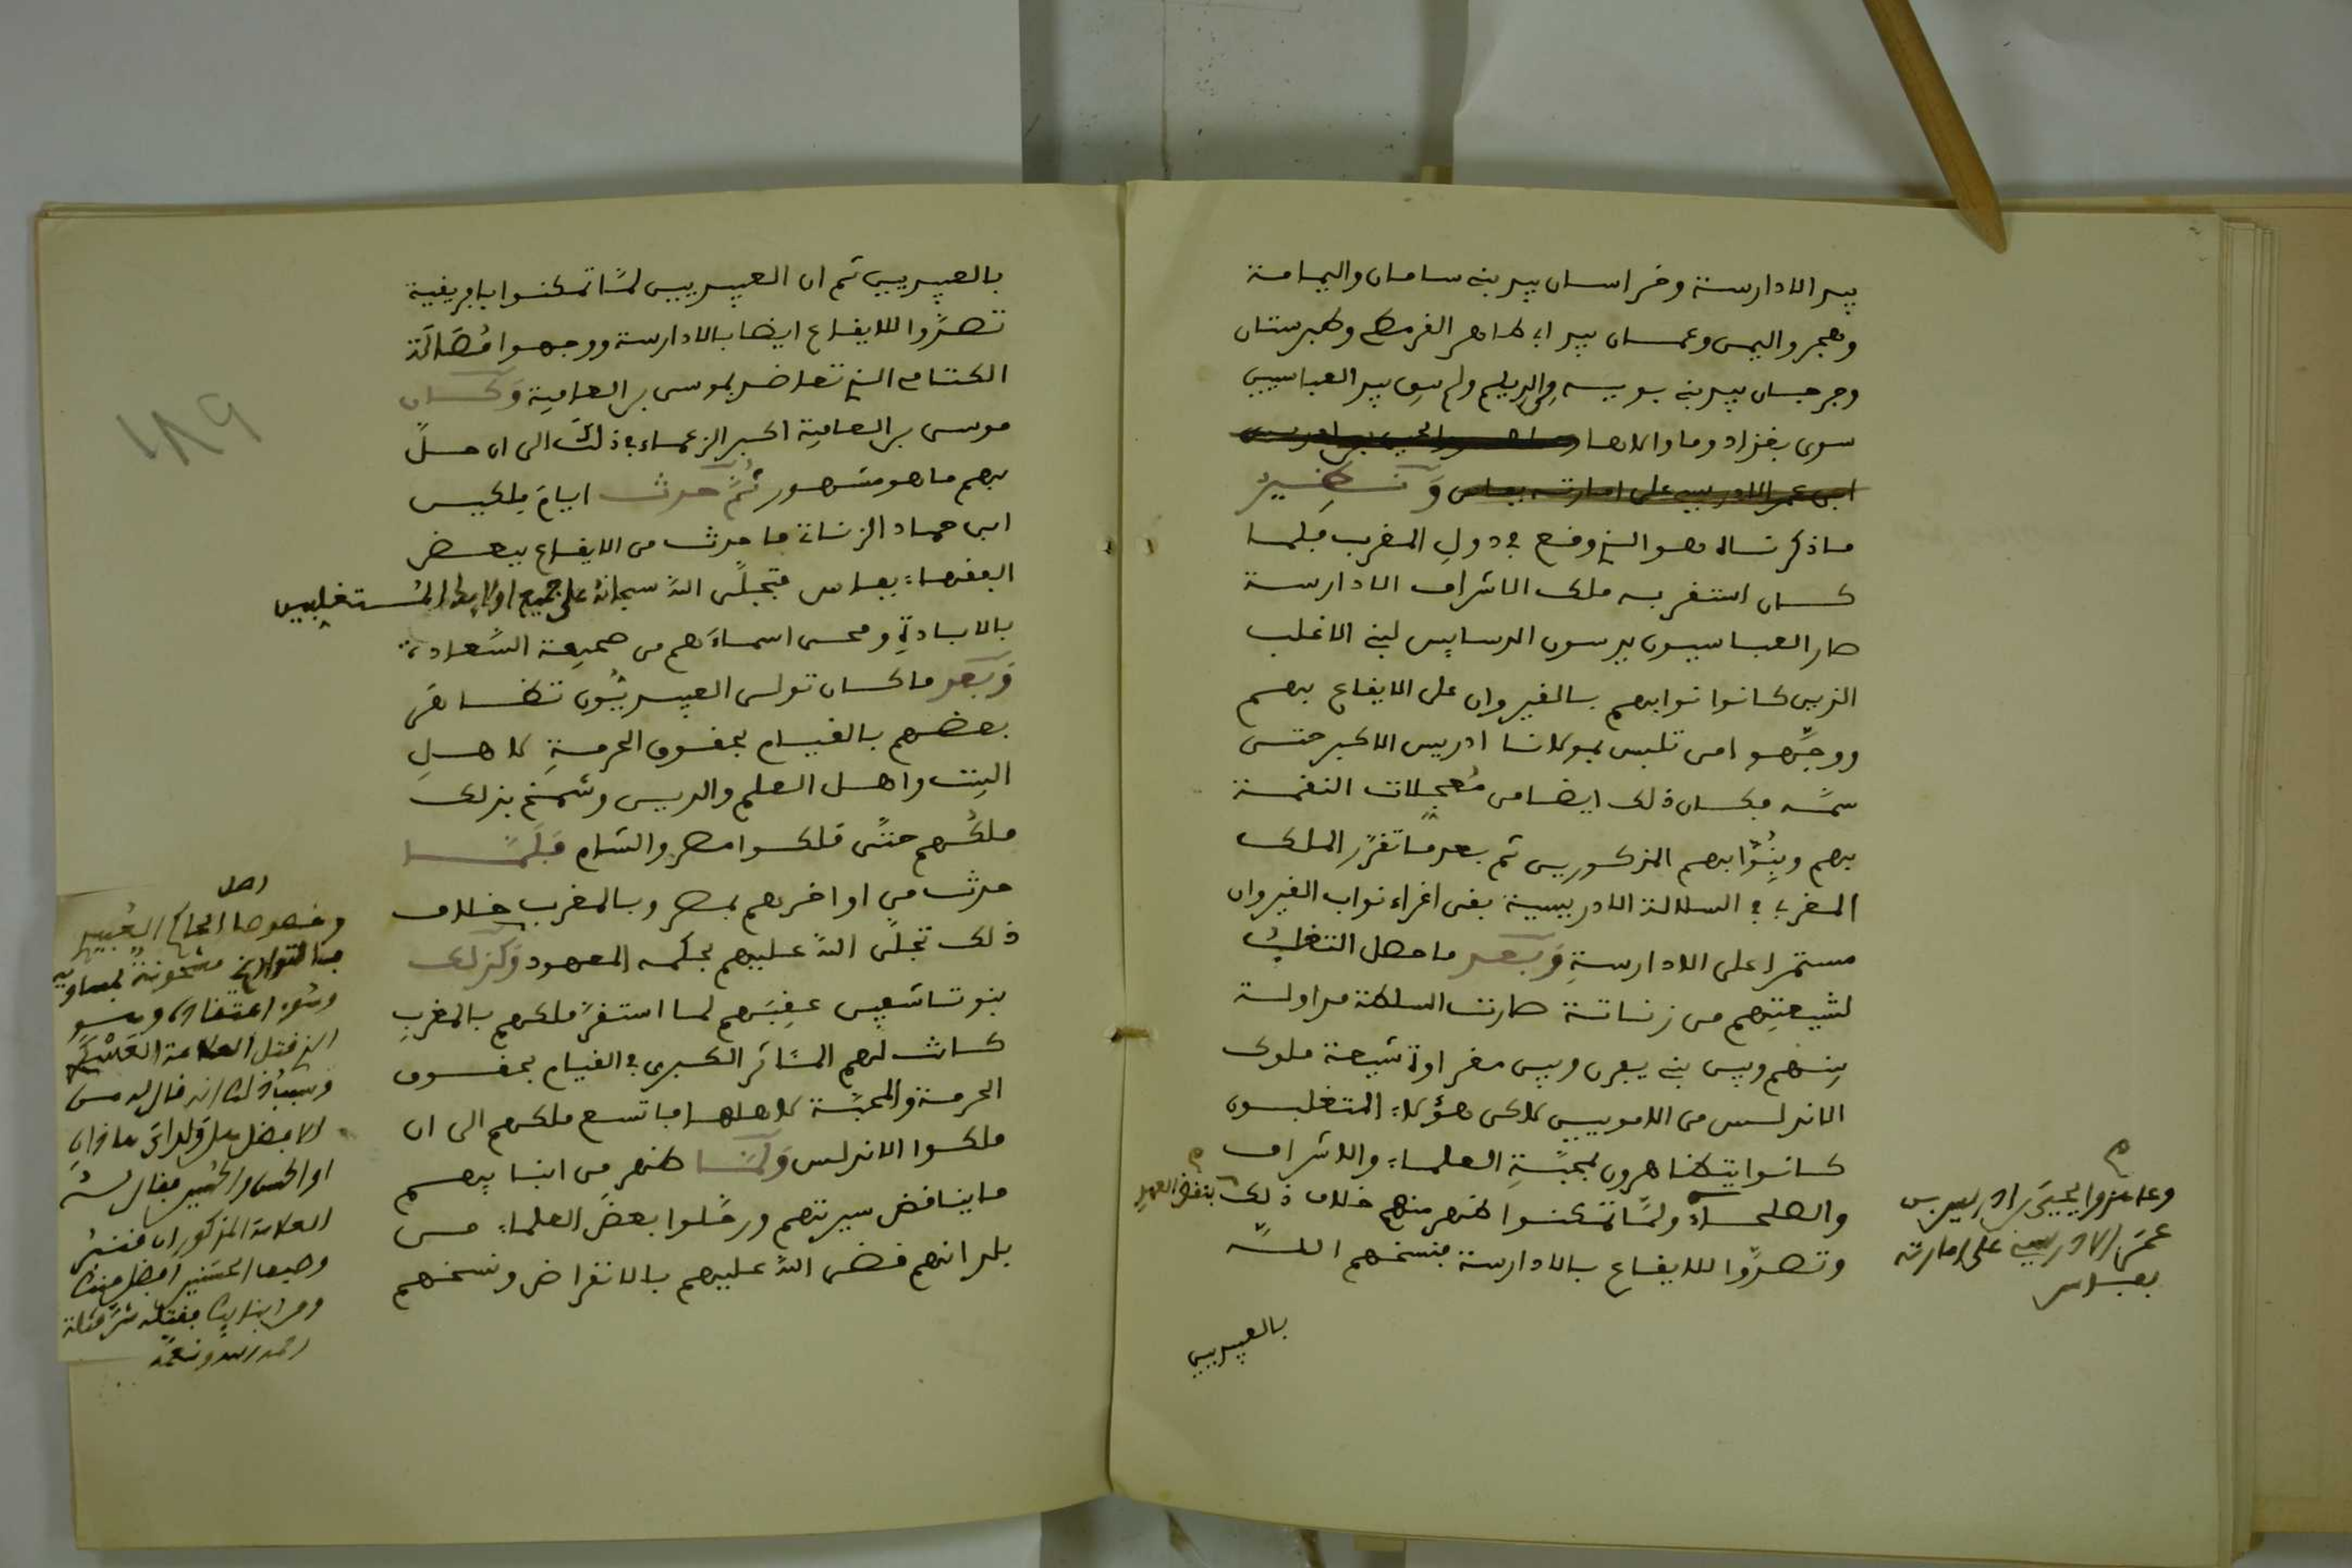 بيد الادارسة وخراسان بيد بني سامان واليمامة
وهجر واليمن وعمان بيد ابي طاهر القرمطي وطبرستان
وجرجان بيد بني بويه والديلم ولم يبق بيد العباسيين
سوى بغداد وما والاها
ابن عمر الادريسي على امارته بفاس ونظير
ما ذكرناه هو الذي وقع في دول المغرب فلما
كان استقر به ملك الاشراف الادارسة
صار العباسيون يدسون الدسايس لبني الاغلب
الذين كانوا نوابهم بالقيروان على الايقاع بهم
ووجهوا من تلبس بمولانا ادريس الاكبر حتى
سمه فكان ذلك ايضا من معجلات النقمة
بهم وبنوابهم المذكورين ثم بعد ما تقرر الملك
المغربي في السلالة الادريسية بقى اغراء نواب القيروان
مستمرا على الادارسة وبعد ما حصل التغلب
لشيعتهم من زناتة صارت السلطة مداولة
بينهم وبين بني يفرن وبين مغراوة شيعة ملوك
الاندلس من الامويين لاكن هؤلاء المتغلبون
كانوا يتظاهرون بمحبة العلماء والاشراف
والصلحاء ولما تمكنوا ظهر منهم خلاف ذلك
بنقض العهد
وتصدوا للايقاع بالادارسة فنسخهم الله
بالعبيديين
م
وعاهدوا يحيى بن ادريس بن
عمر الادريسي على امارته
بفاس
بالعبيديين ثم ان العبيديين لما تمكنوا بافريقية
تصدوا للايقاع ايضا بالادارسة ووجهوا مصالة
الكتامي الذي تعاضد بموسى بن العافية وكان
موسى بن العافية اكبر الزعماء في ذلك الى ان حل
بهم ما هو مشهور ثم حدث ايام بلكين
ابن حماد الزناتي ما حدث من الايقاع ببعض
الفقهاء بفاس فتجلى الله سبحانه على جميع اولايك المستغلبين
بالابادة ومحى اسماءهم من صحيفة السعادة
وبعد ما كان تولى العبيديون تظاهر
بعضهم بالقيام بحقوق الحرمة لاهل
البيت واهل العلم والدين وشمخ بذلك
ملكهم حتى ملكوا مصر والشام فلما
حدث من اواخرهم بمصر وبالمغرب خلاف
ذلك تجلى الله عليهم بحكمه المعهود وكذلك
بنو تاشفين عقبهم لما استقر ملكهم بالمغرب
كانت لهم المئاثر الكبرى في القيام بحقوق
الحرمة والمحبة لاهلها فاتسع ملكهم الى ان
ملكوا الاندلس ولما ظهر من ابنايهم
ما يناقض سيرتهم ورحلوا بعض العلماء من
بلدانهم قضى الله عليهم بالانقراض ونسخهم
اصل
وخصوصا الحاكم العبيدي
فالتواريخ مشحونة بمساويه
وسوء اعتقاده وهو
الذي قتل العلامة
وسبب ذلك انه قال له من
الافضل هل ولداي هاذان
او الحسن والحسين فقال له
العلامة المذكور ان
وصيف الحسنين افضل منك
ومن ابنايك فقتله شر قتلة
رحمه الله ونعمه